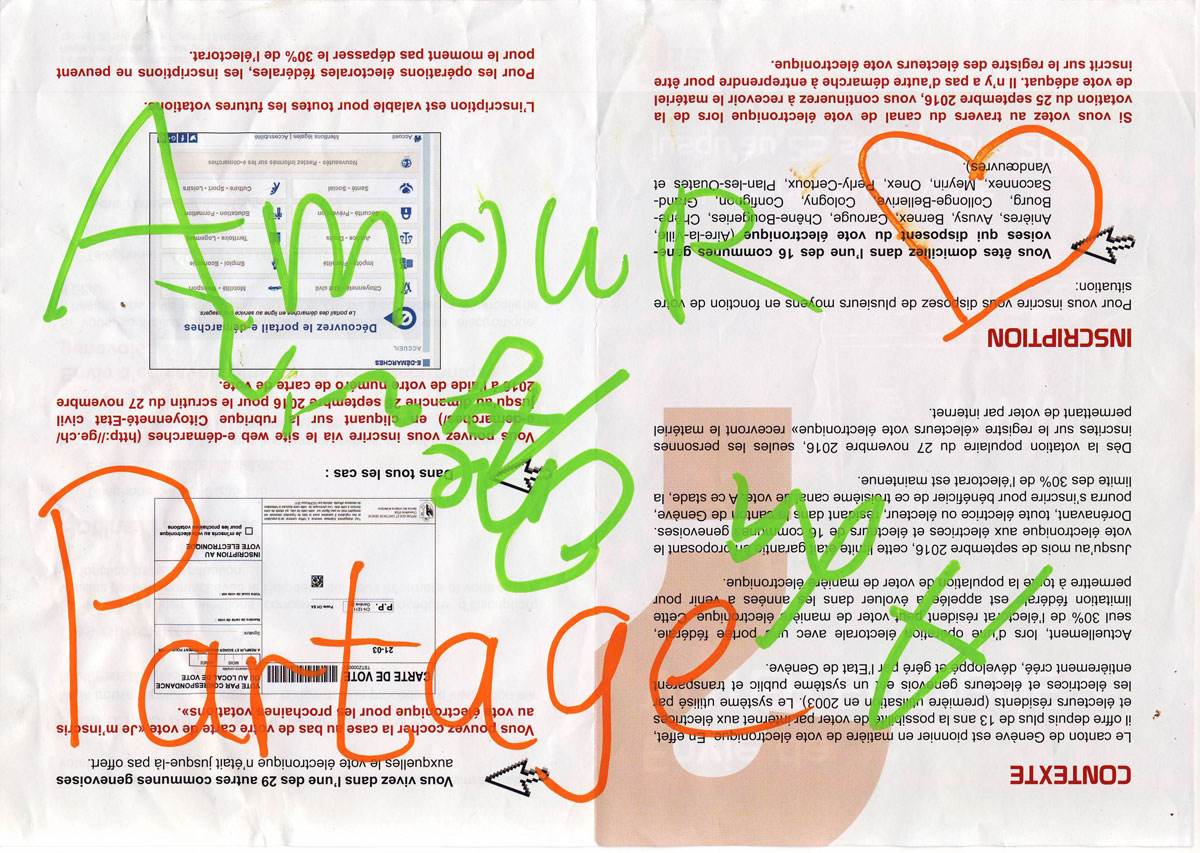 AmouR
Partage
CONTEXTE
Le canton de Genève est pionnier en matière de vote électronique. En effet,
il offre depuis plus de 13 ans la possibilité de voter par internet aux électrices
et électeurs résidents (première utilisation en 2003). Le système utilisé par
les électrices et électeurs genevois est un système public et transparent
entièrement créé, développé et géré par l'Etat de Genève.
Actuellement, lors d'une opération électorale avec une portée fédérale,
seul 30% de l'électorat résident peut voter de manière électronique. Cette
limitation fédérale est appelée à évoluer dans les années à venir pour
permettre à toute la population de voter de manière électronique.
Jusqu'au mois de septembre 2016, cette limite était garantie en proposant le
vote électronique aux électrices et électeurs de 16 communes genevoises.
Dorénavant, toute électrice ou électeur, résidant dans le canton de Genève,
pourra s'inscrire pour bénéficier de ce troisième canal de vote. A ce stade, la
limite des 30% de l'électorat est maintenue.
Dès la votation populaire du 27 novembre 2016, seules les personnes
inscrites sur le registre «électeurs vote électronique» recevront le matériel
permettant de voter par internet.
INSCRIPTION
Pour vous inscrire vous disposez de plusieurs moyens en fonction de votre
situation:
Vous êtes domiciliez dans l'une des 16 communes gene-
voises qui disposent du vote électronique (Aire-la-Ville,
Anières, Avusy, Bernex, Carouge, Chêne-Bougeries, Chêne-
Bourg, Collonge-Bellerive, Cologny, Confignon, Grand-
Saconnex, Meyrin, Onex, Perly-Certoux, Plan-les-Ouates et
Vandœuvres).
Si vous votez au travers du canal de vote électronique lors de la
votation du 25 septembre 2016, vous continuerez à recevoir le matériel
de vote adéquat. Il n'y a pas d'autre démarche à entreprendre pour être
inscrit sur le registre des électeurs vote électronique.
Vous vivez dans l'une des 29 autres communes genevoises
auxquelles le vote électronique n'était jusque-là pas offert.
Vous pouvez cocher la case au bas de votre carte de vote «Je m'inscris
au vote électronique pour les prochaines votations».
CARTE DE VOTE
21-03
P.P.
VOTE PAR CORRESPONDANCE
OU AU LOCAL DE VOTE
Signature
INSCRIPTION AU
VOTE ELECTRONIQUE
Je m'inscris au vote électronique
pour les prochaines votations
Dans tous les cas :
Vous pouvez vous inscrire via le site web e-démarches (http://ge.ch/
e-demarches/) en cliquant sur la rubrique Citoyenneté-Etat civil
jusqu'au dimanche 25 septembre 2016 pour le scrutin du 27 novembre
2016 à l'aide de votre numéro de carte de vote.
E-DÉMARCHES
ACCUEIL
Découvrez le portail e-démarches
Le portail des démarches en ligne au service des usagers.
Citoyenneté - Etat civil
Mobilité - Transport
Impôts - Fiscalité
Emploi - Economie
Justice - Droits
Territoire - Logement
Sécurité - Prévention
Education - Formation
Santé - Social
Culture - Sport - Loisirs
Nouveautés - Restez informés sur les e-démarches
Accueil
Mentions légales | Accessibilité
L'inscription est valable pour toutes les futures votations.
Pour les opérations électorales fédérales, les inscriptions ne peuvent
pour le moment pas dépasser le 30% de l'électorat.